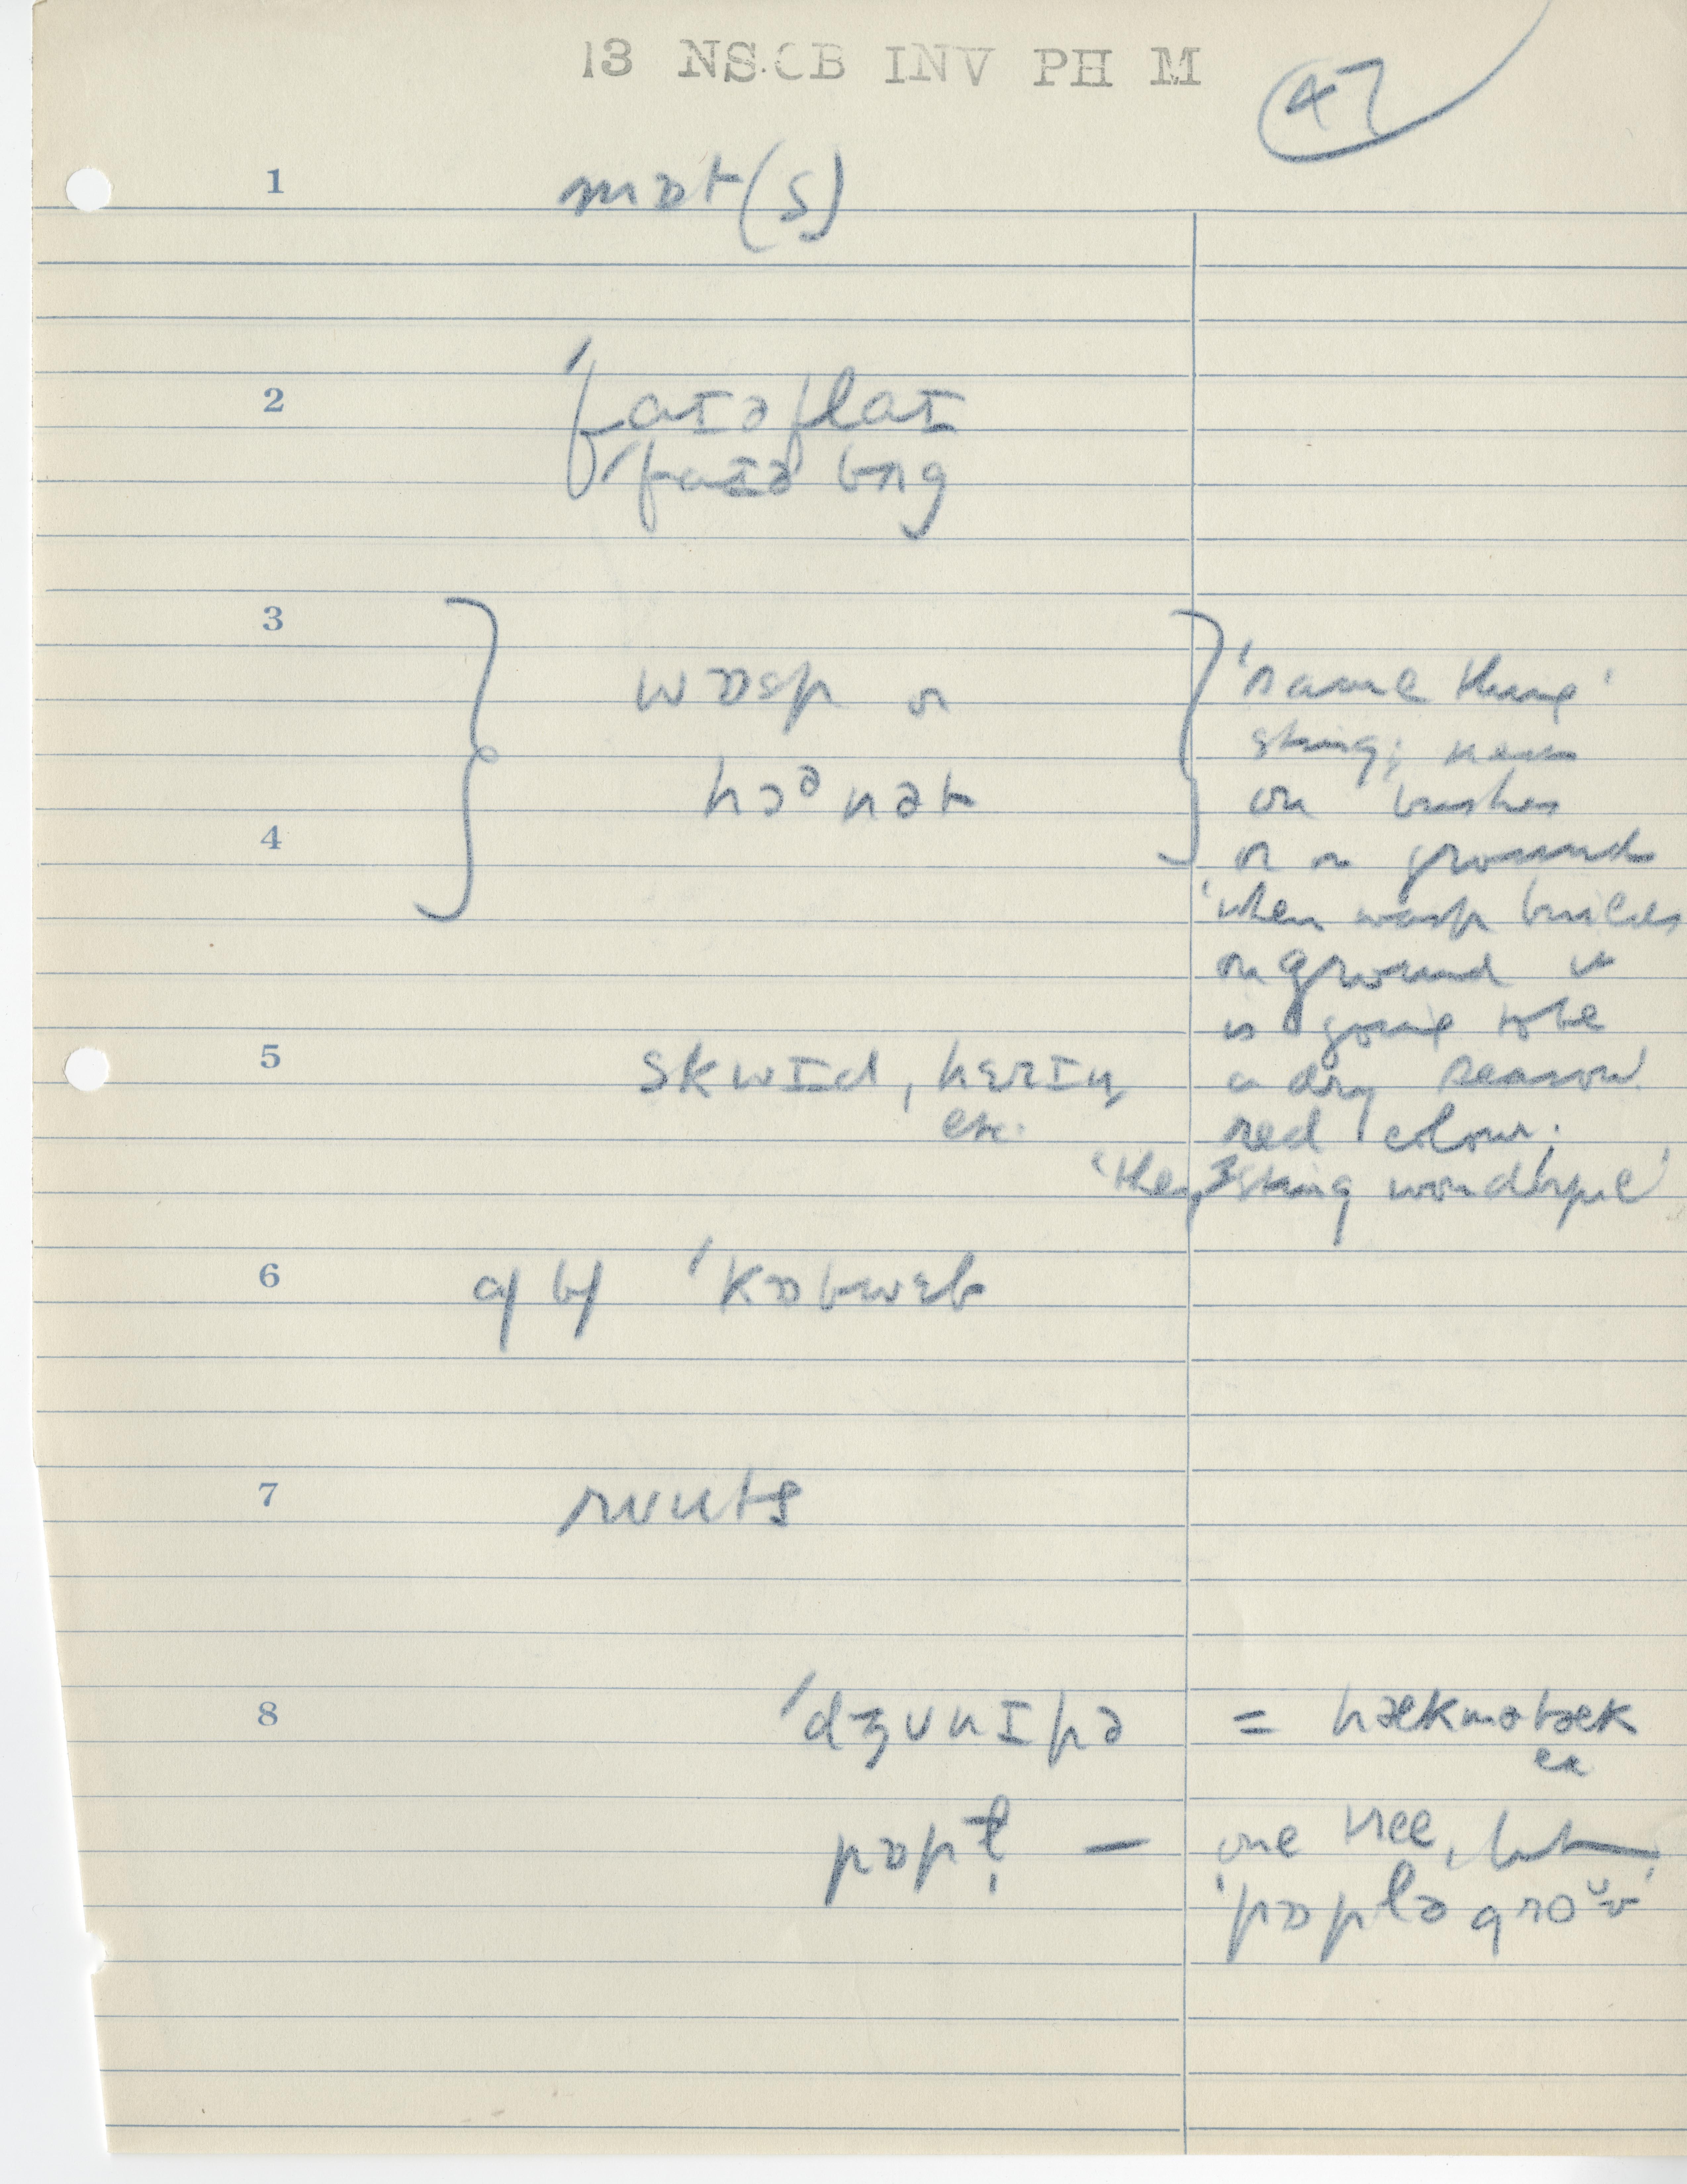 13 NSCB INV PH M
47
1 mɒt(s)
2 ˈfaɪəflaɪ
ˈfaɪə bʌg
3 wɒsp or
hɔᵊnət
4
'same thing'
sting; nests
on bushes
or on ground
'when wasp builds
on ground it
is going to be
a dry season
red colour;
'they sting wonderful'
5 skwɪd, hɛrɪŋ,
etc.
6 a/ b/ ˈkɒbwɛb
7 ruuts
8 ˈdʒunɪpə = hækmətæk
pɒpl̩ — one tree, but
'pɒplə groʊv'